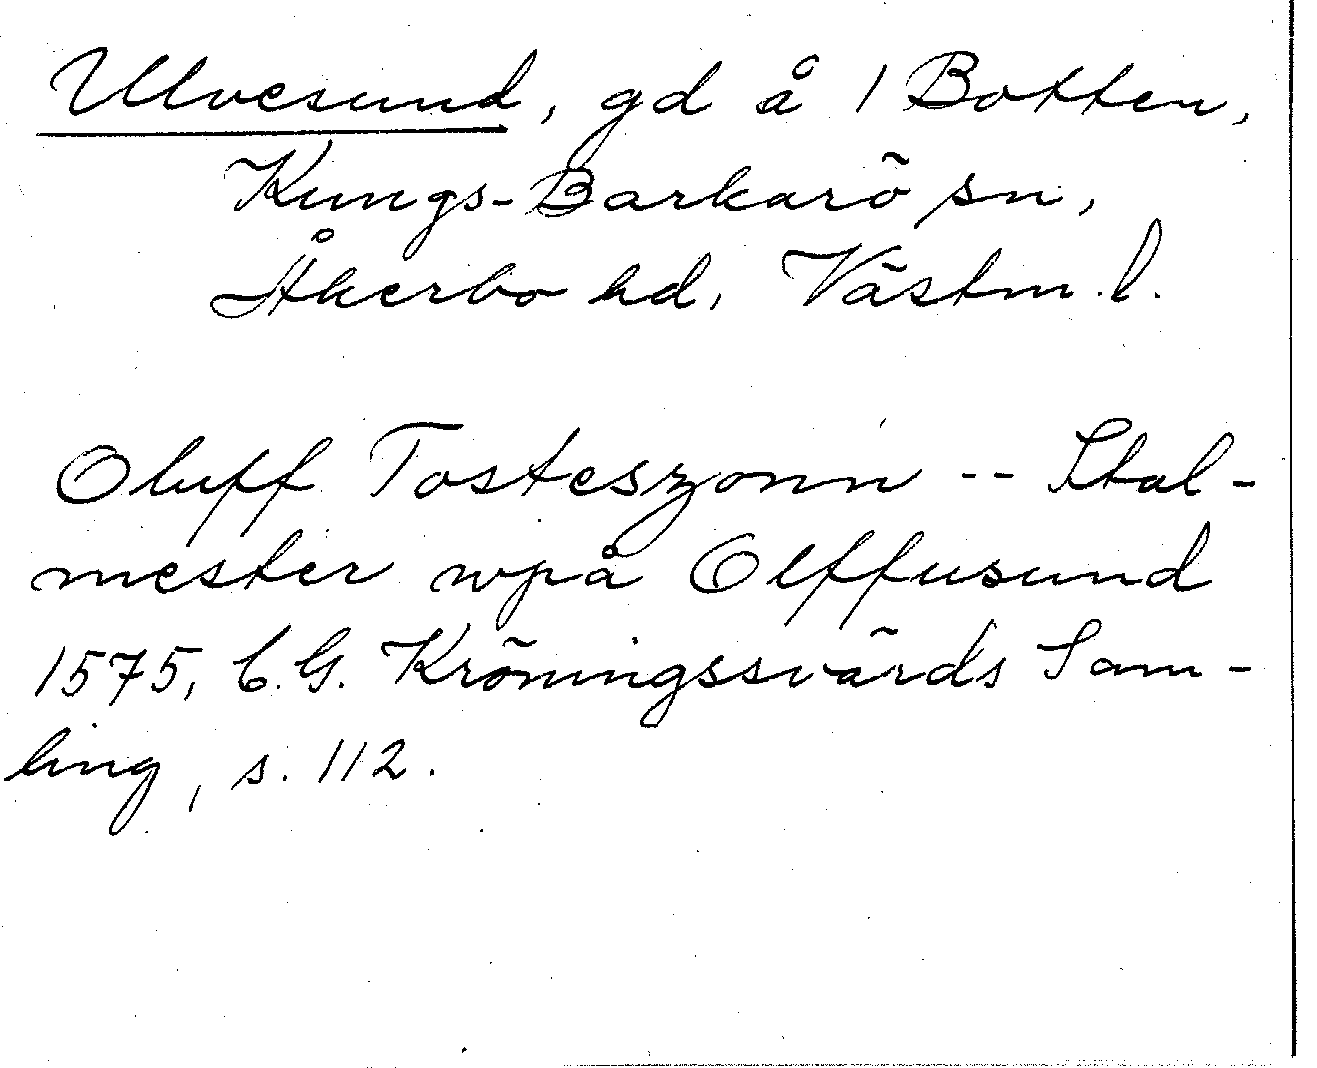 Ulvesund, gd å 1 Botten,
Kungs-Barkarö sn,
Åkerbo hd, Västm. l.
Oluff Tosteszonn -- Stal-
mester wpå Olffusund
1575, C. G. Kröningssvärds Sam-
ling, s. 112.